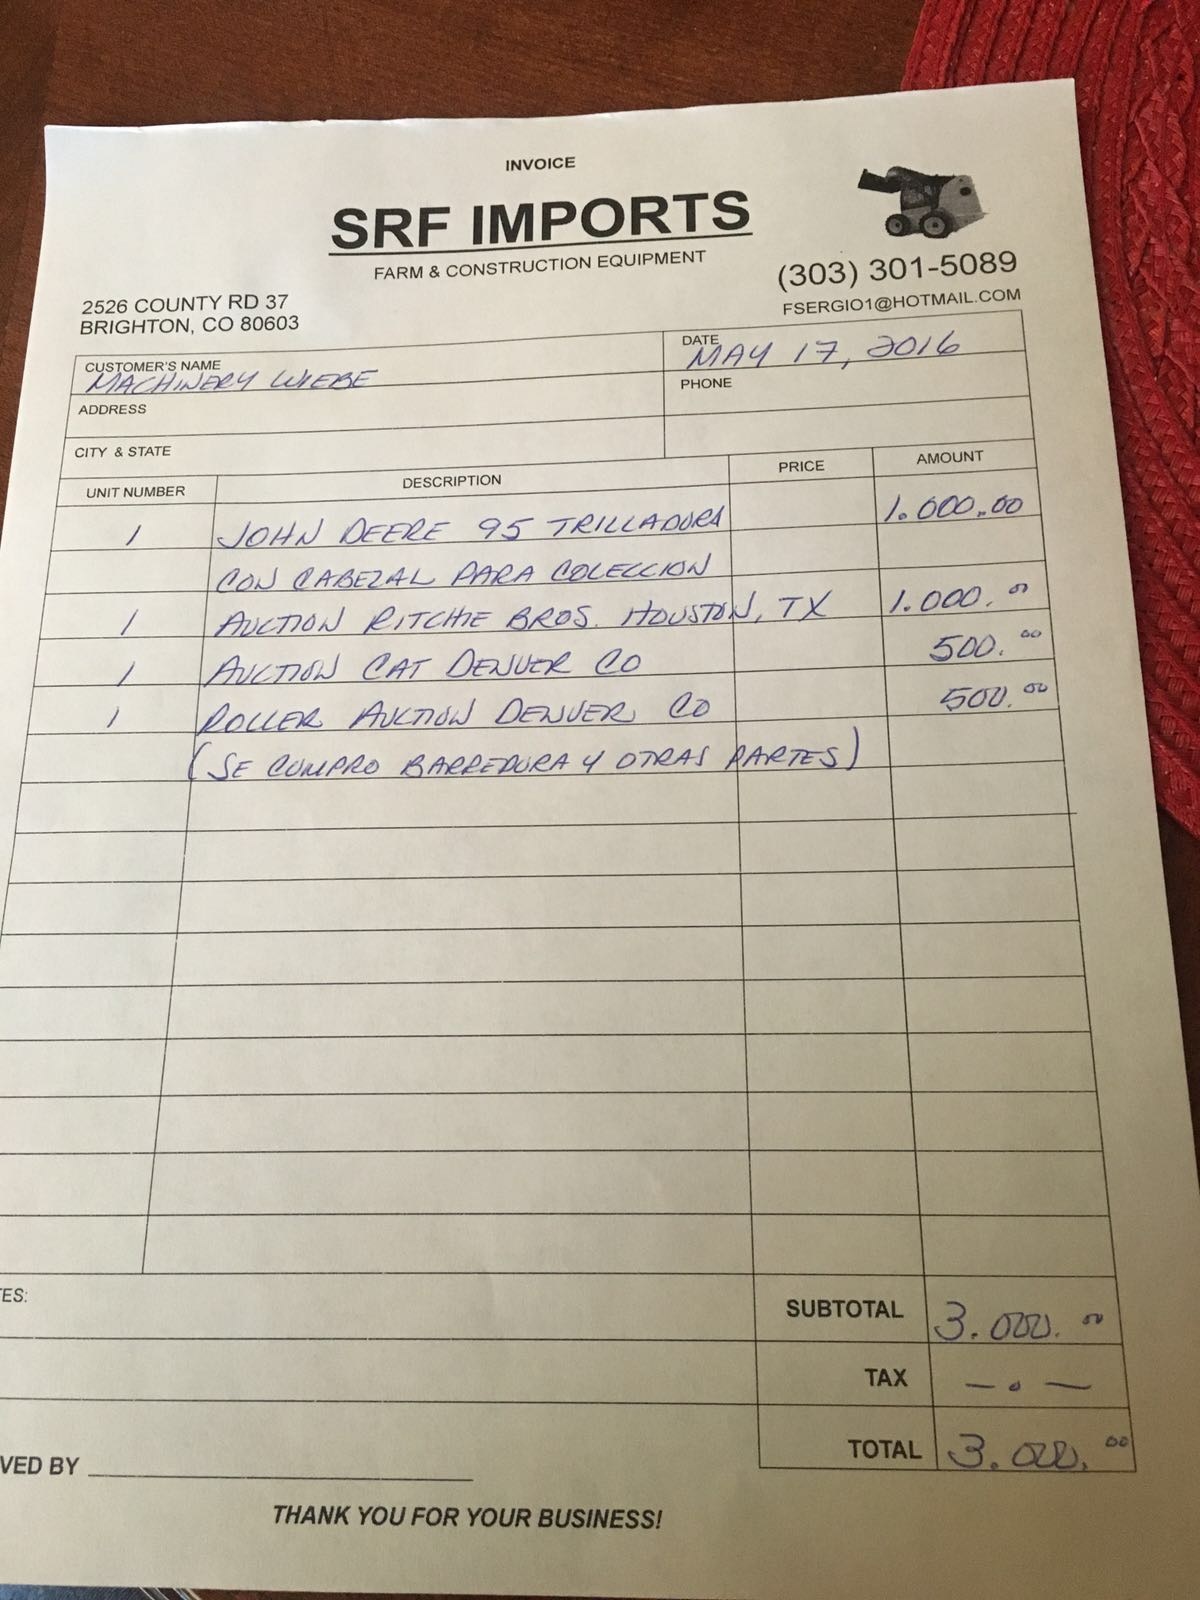 INVOICE
SRF IMPORTS
FARM & CONSTRUCTION EQUIPMENT
(303) 301-5089
FSERGIO1@HOTMAIL.COM
2526 COUNTY RD 37
BRIGHTON, CO 80603
CUSTOMER'S NAME
MACHINERY WIEBE
DATE
MAY 17, 2016
ADDRESS
PHONE
CITY & STATE
UNIT NUMBER DESCRIPTION PRICE AMOUNT
1 JOHN DEERE 95 TRILLADORA 1.000.00
CON CABEZAL PARA COLECCION
1 AUCTION RITCHIE BROS. HOUSTON, TX 1.000.00
1 AUCTION CAT DENVER CO 500.00
1 ROLLER AUCTION DENVER CO 500.00
(SE COMPRO BARREDORA Y OTRAS PARTES)
TES:
SUBTOTAL 3.000.00
TAX — . —
TOTAL 3.000.00
VED BY
THANK YOU FOR YOUR BUSINESS!